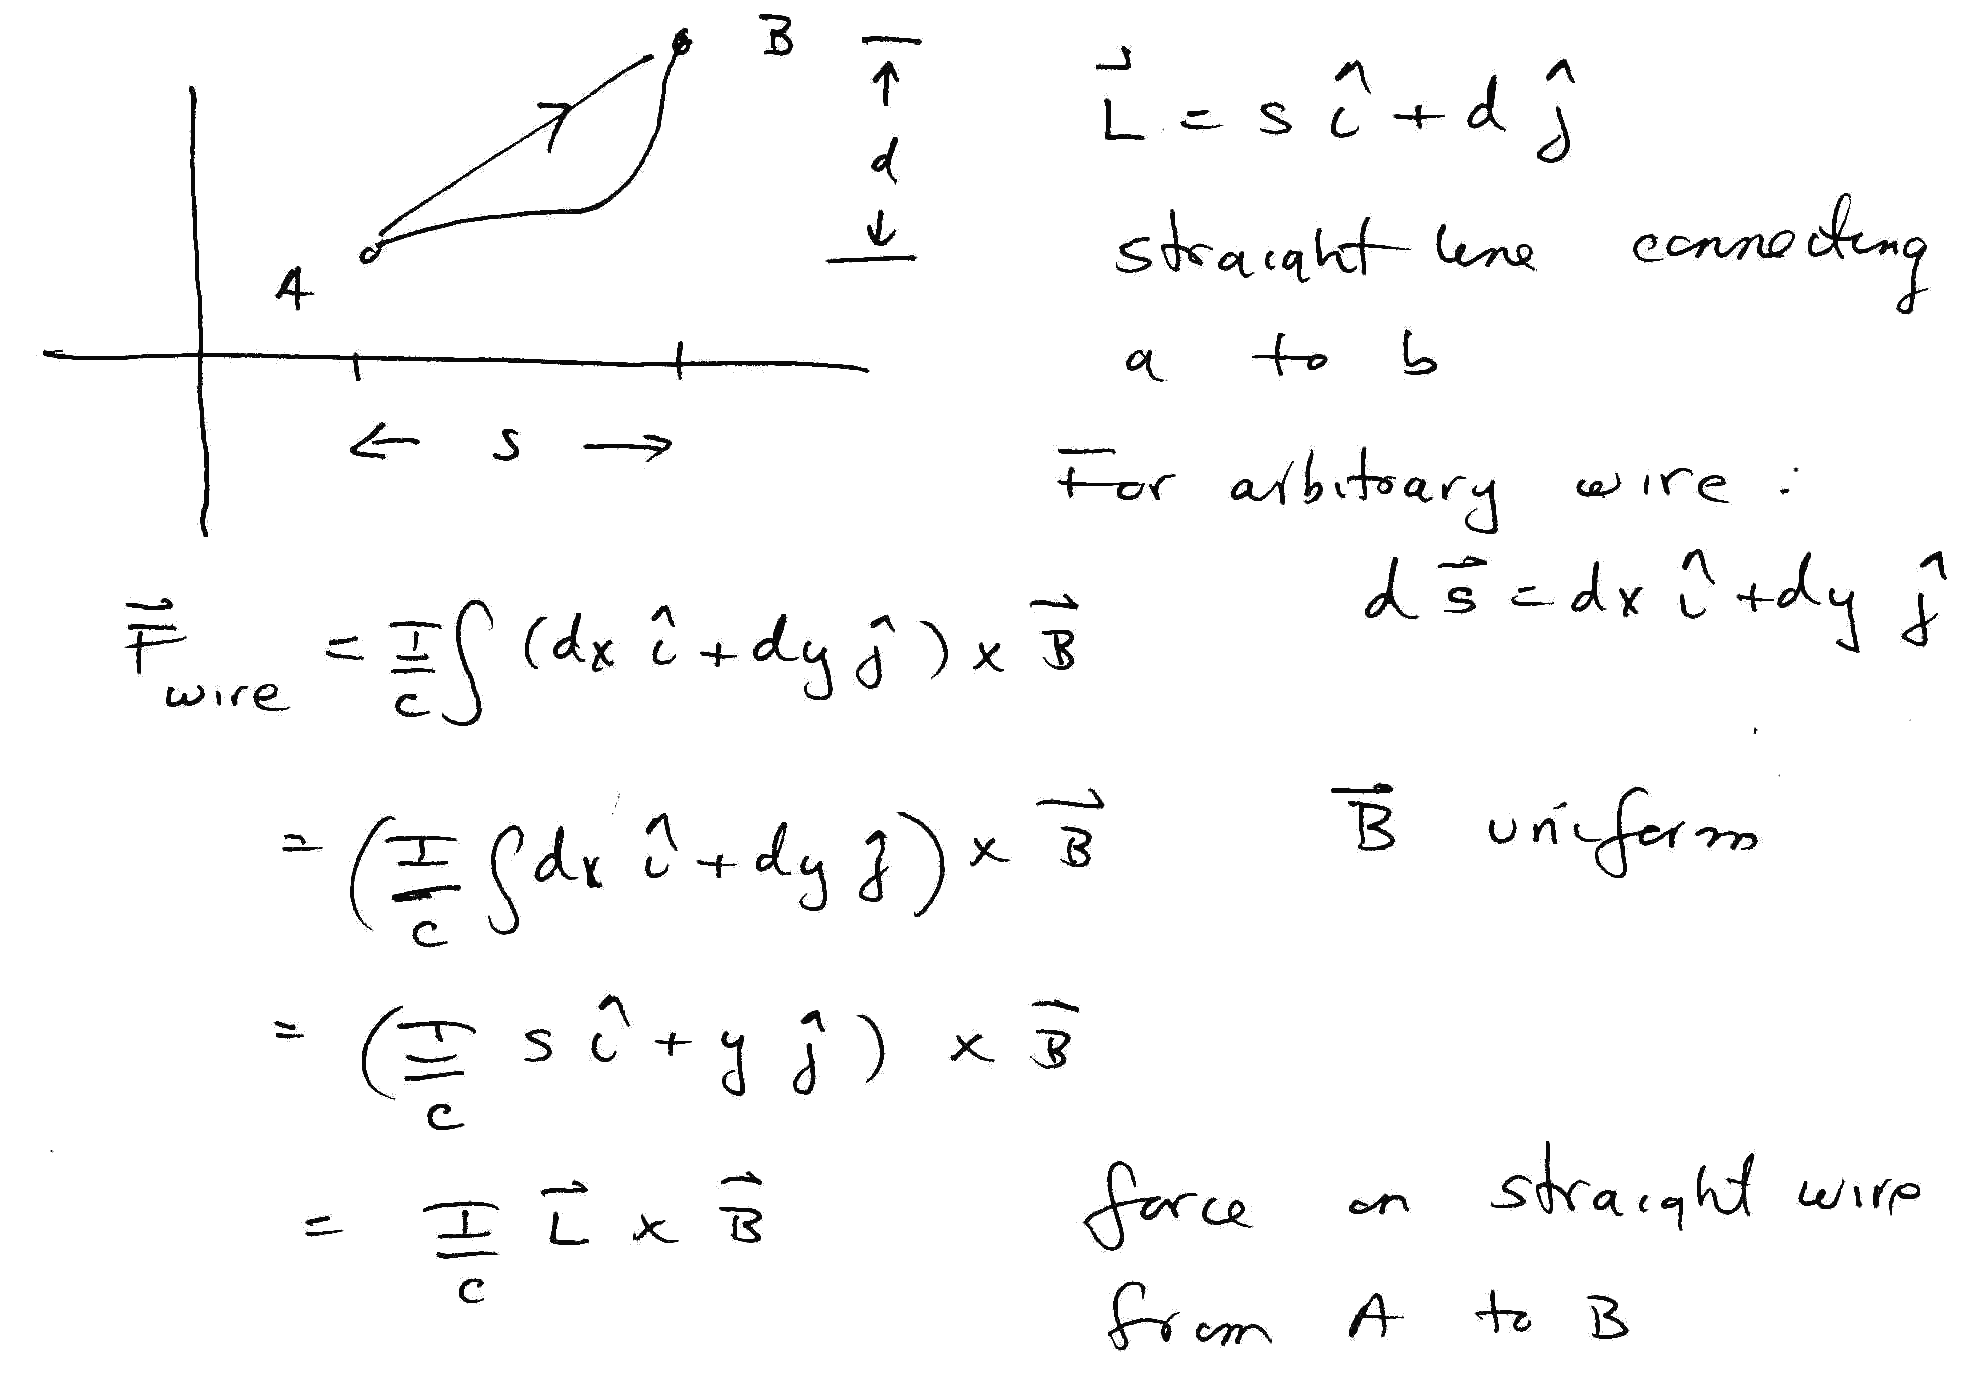 B
d
A
s
L⃗ = s î + d ĵ
straight line connecting
a to b
For arbitrary wire :
d s⃗ = dx î + dy ĵ
F⃗ wire = I/c ∫ (dx î + dy ĵ) × B⃗
= (I/c ∫ dx î + dy ĵ) × B⃗ B⃗ uniform
= (I/c s î + y ĵ) × B⃗
= I/c L⃗ × B⃗ force on straight wire
from A to B